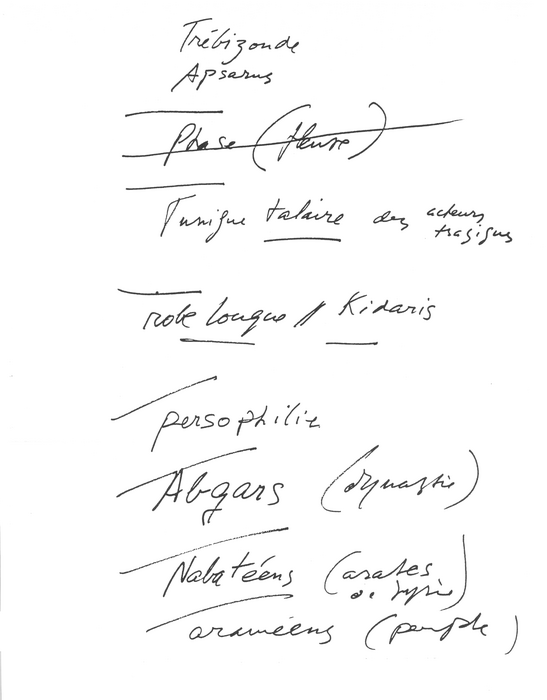 Trébizonde
Apsarus
Phase (fleuve)
Tunique talaire des acteurs
tragiques
robe longue // Kidaris
persophilie
Abgars (dynastie)
Nabatéens (arabes
de Syrie)
araméens (peuple)